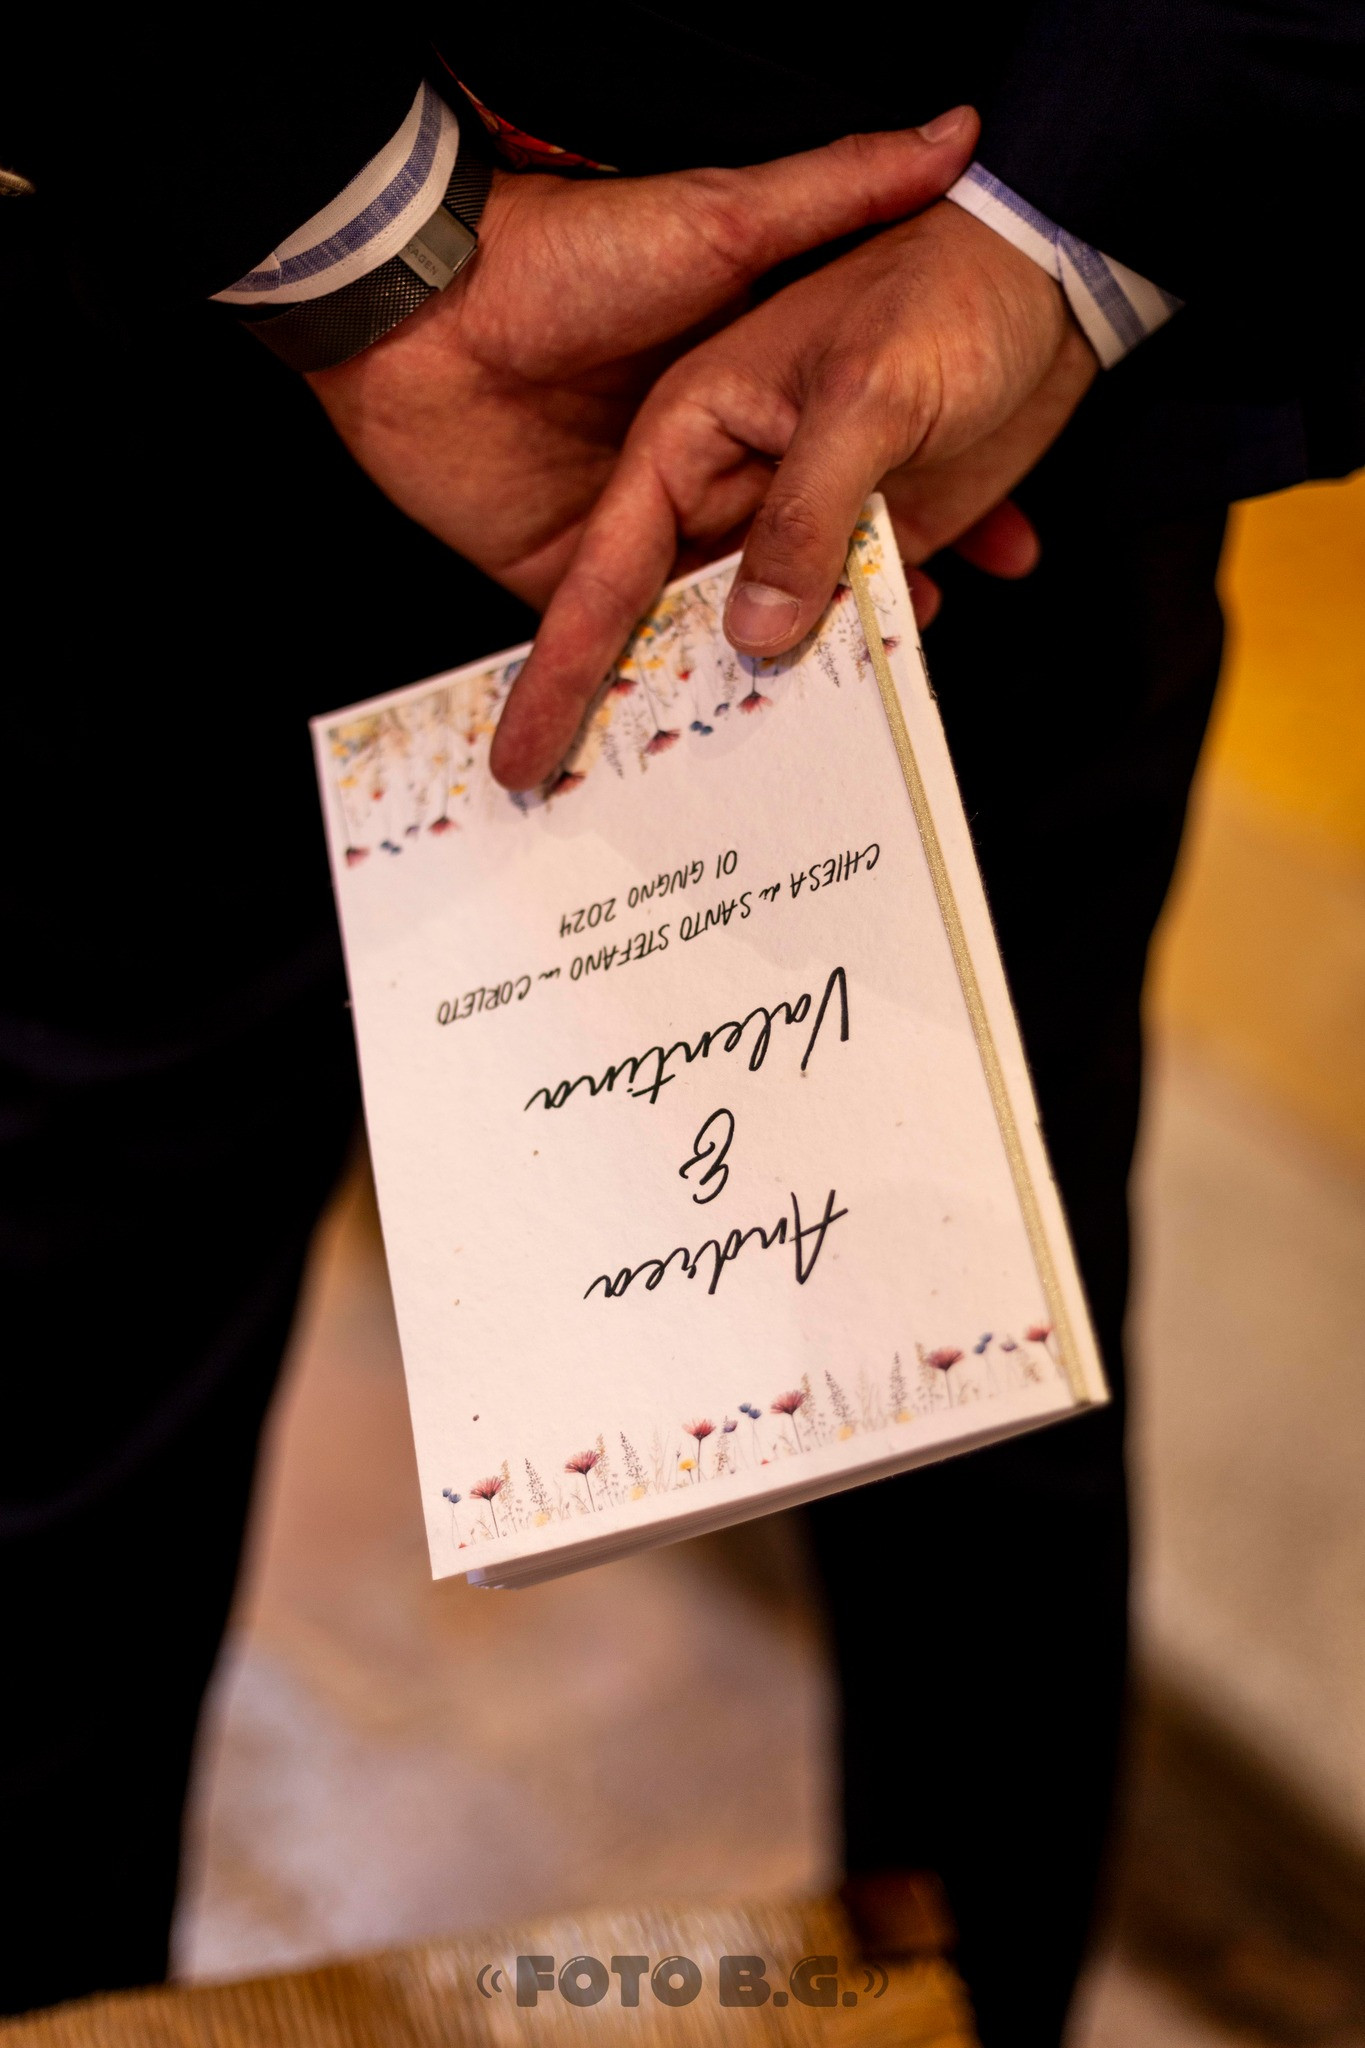 Andrea
&
Valentina
CHIESA di SANTO STEFANO in CORLETO
01 GIUGNO 2024
«FOTO B.G.»